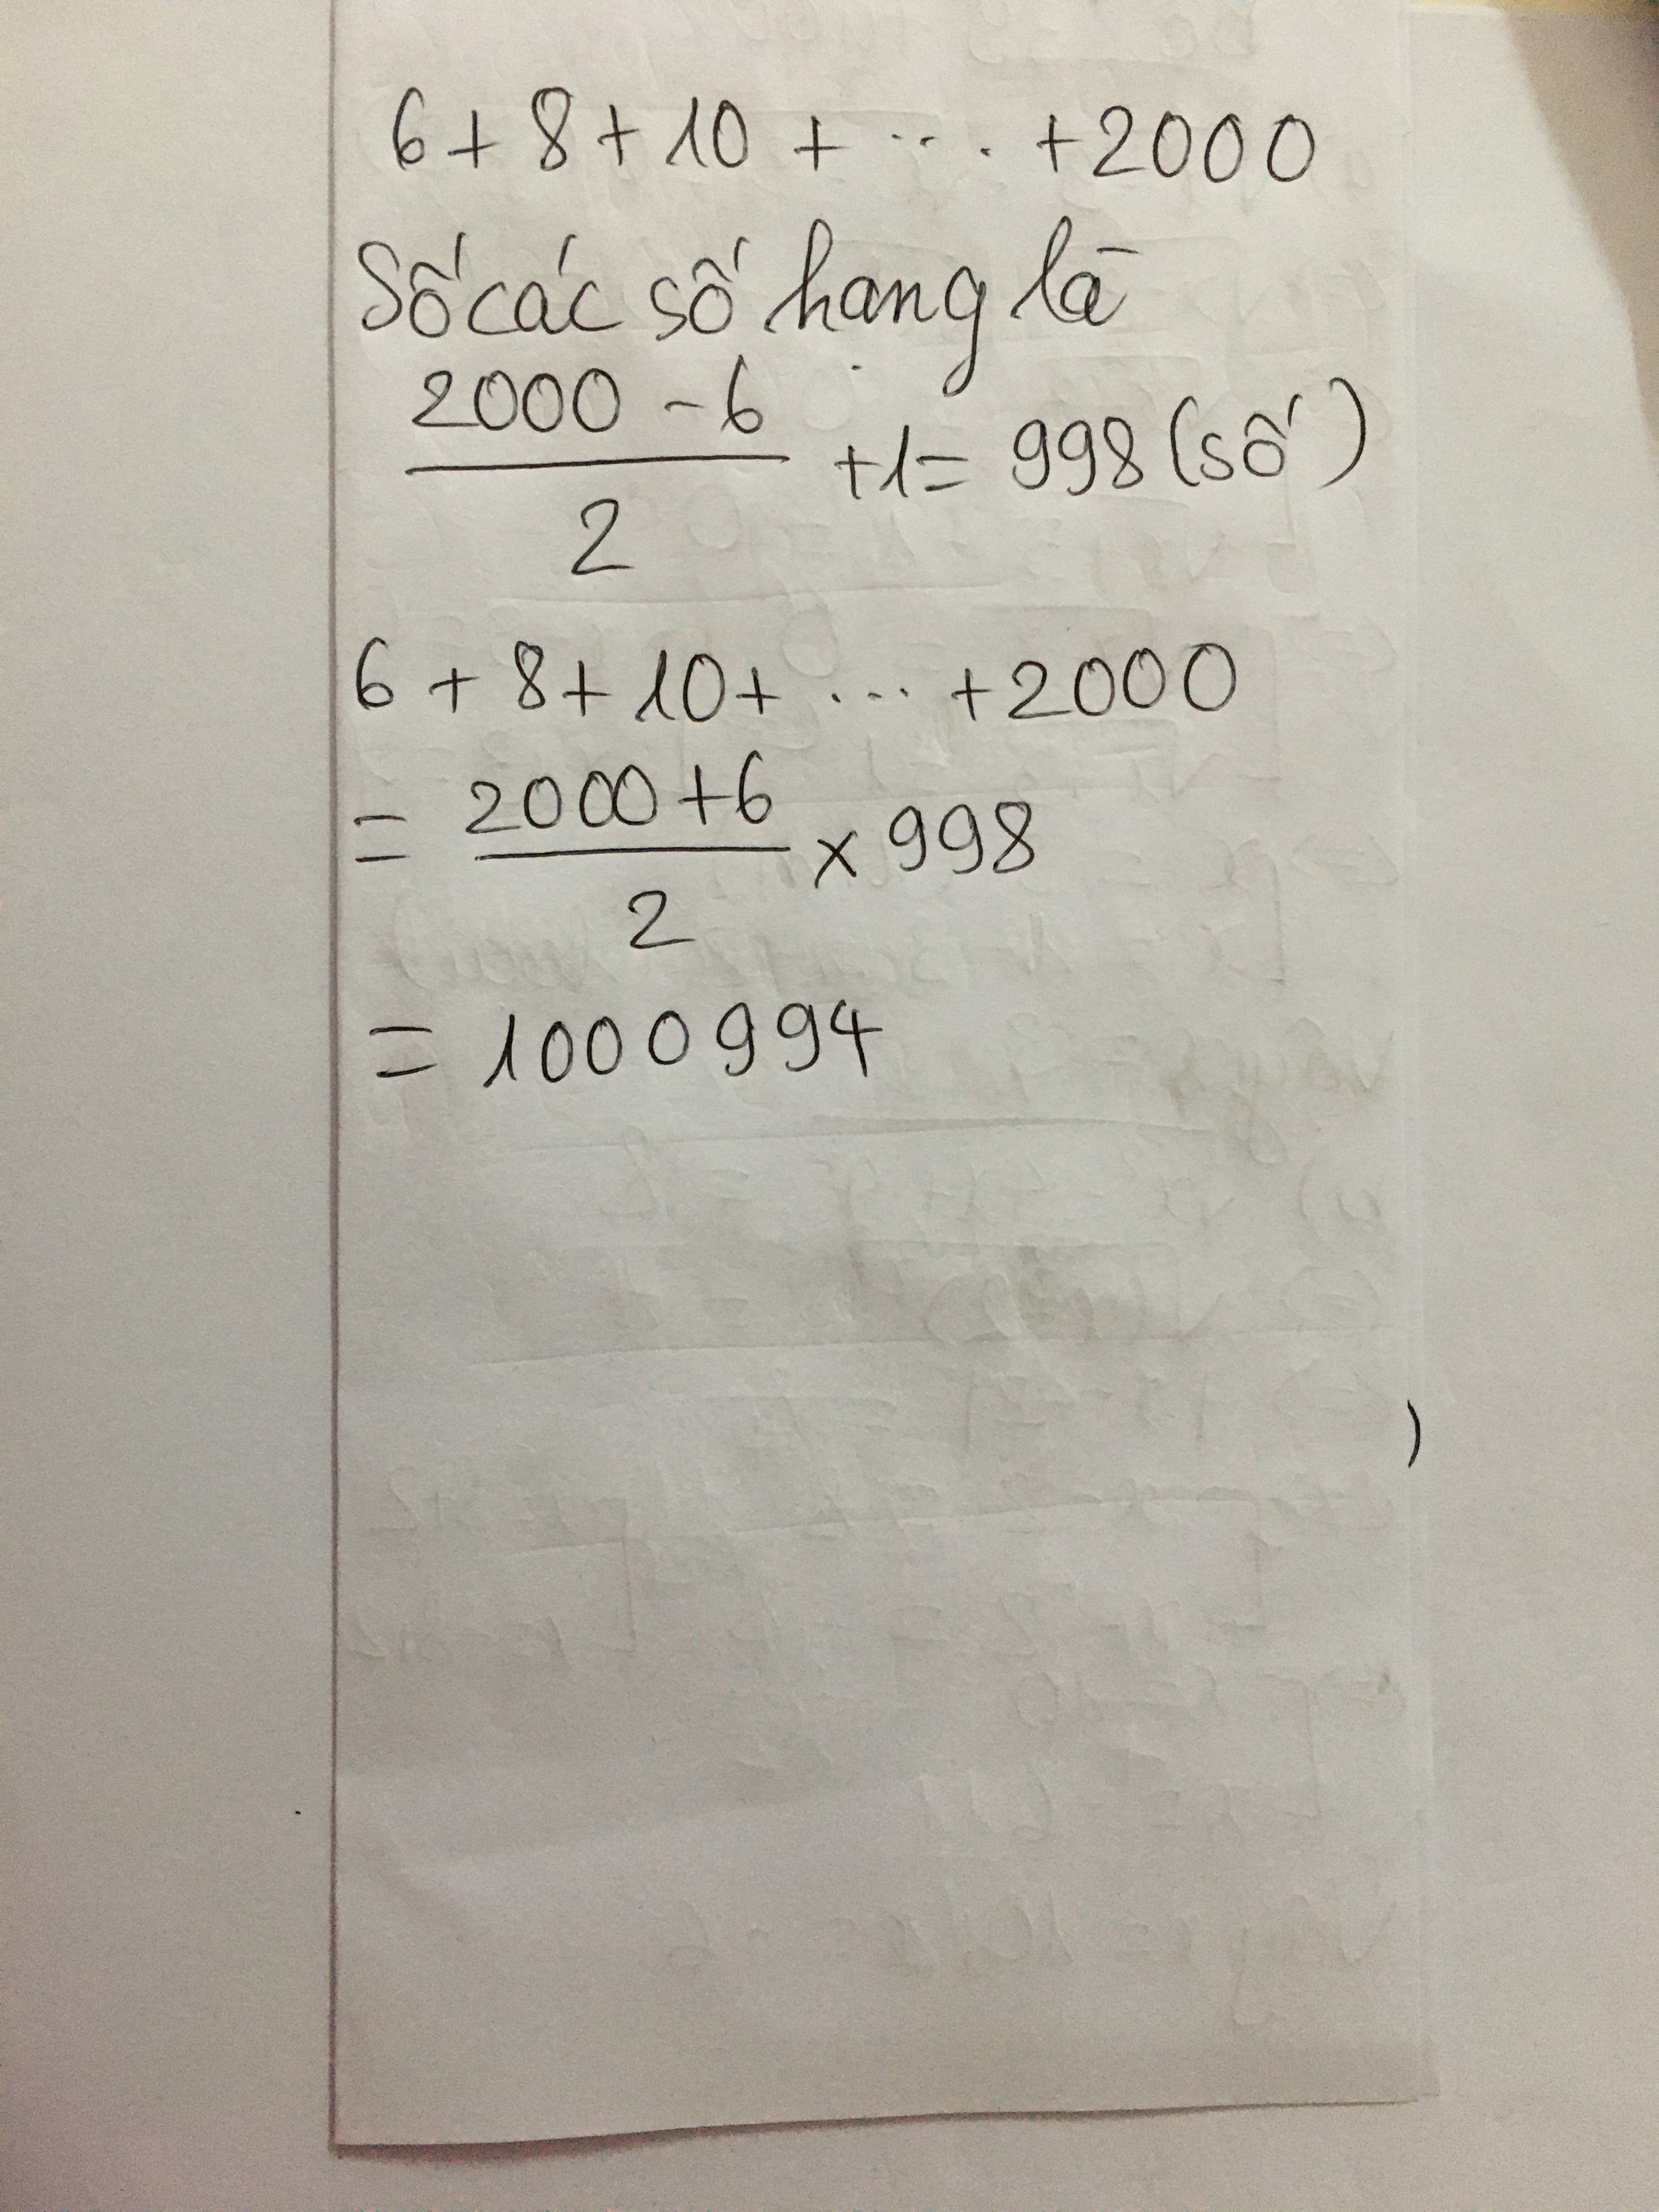 6 + 8 + 10 + ... + 2000
Số các số hạng là
2000 - 6
+1 = 998 (số)
2
6 + 8 + 10 + ... + 2000
= 2000 + 6
x 998
2
= 1000994
)